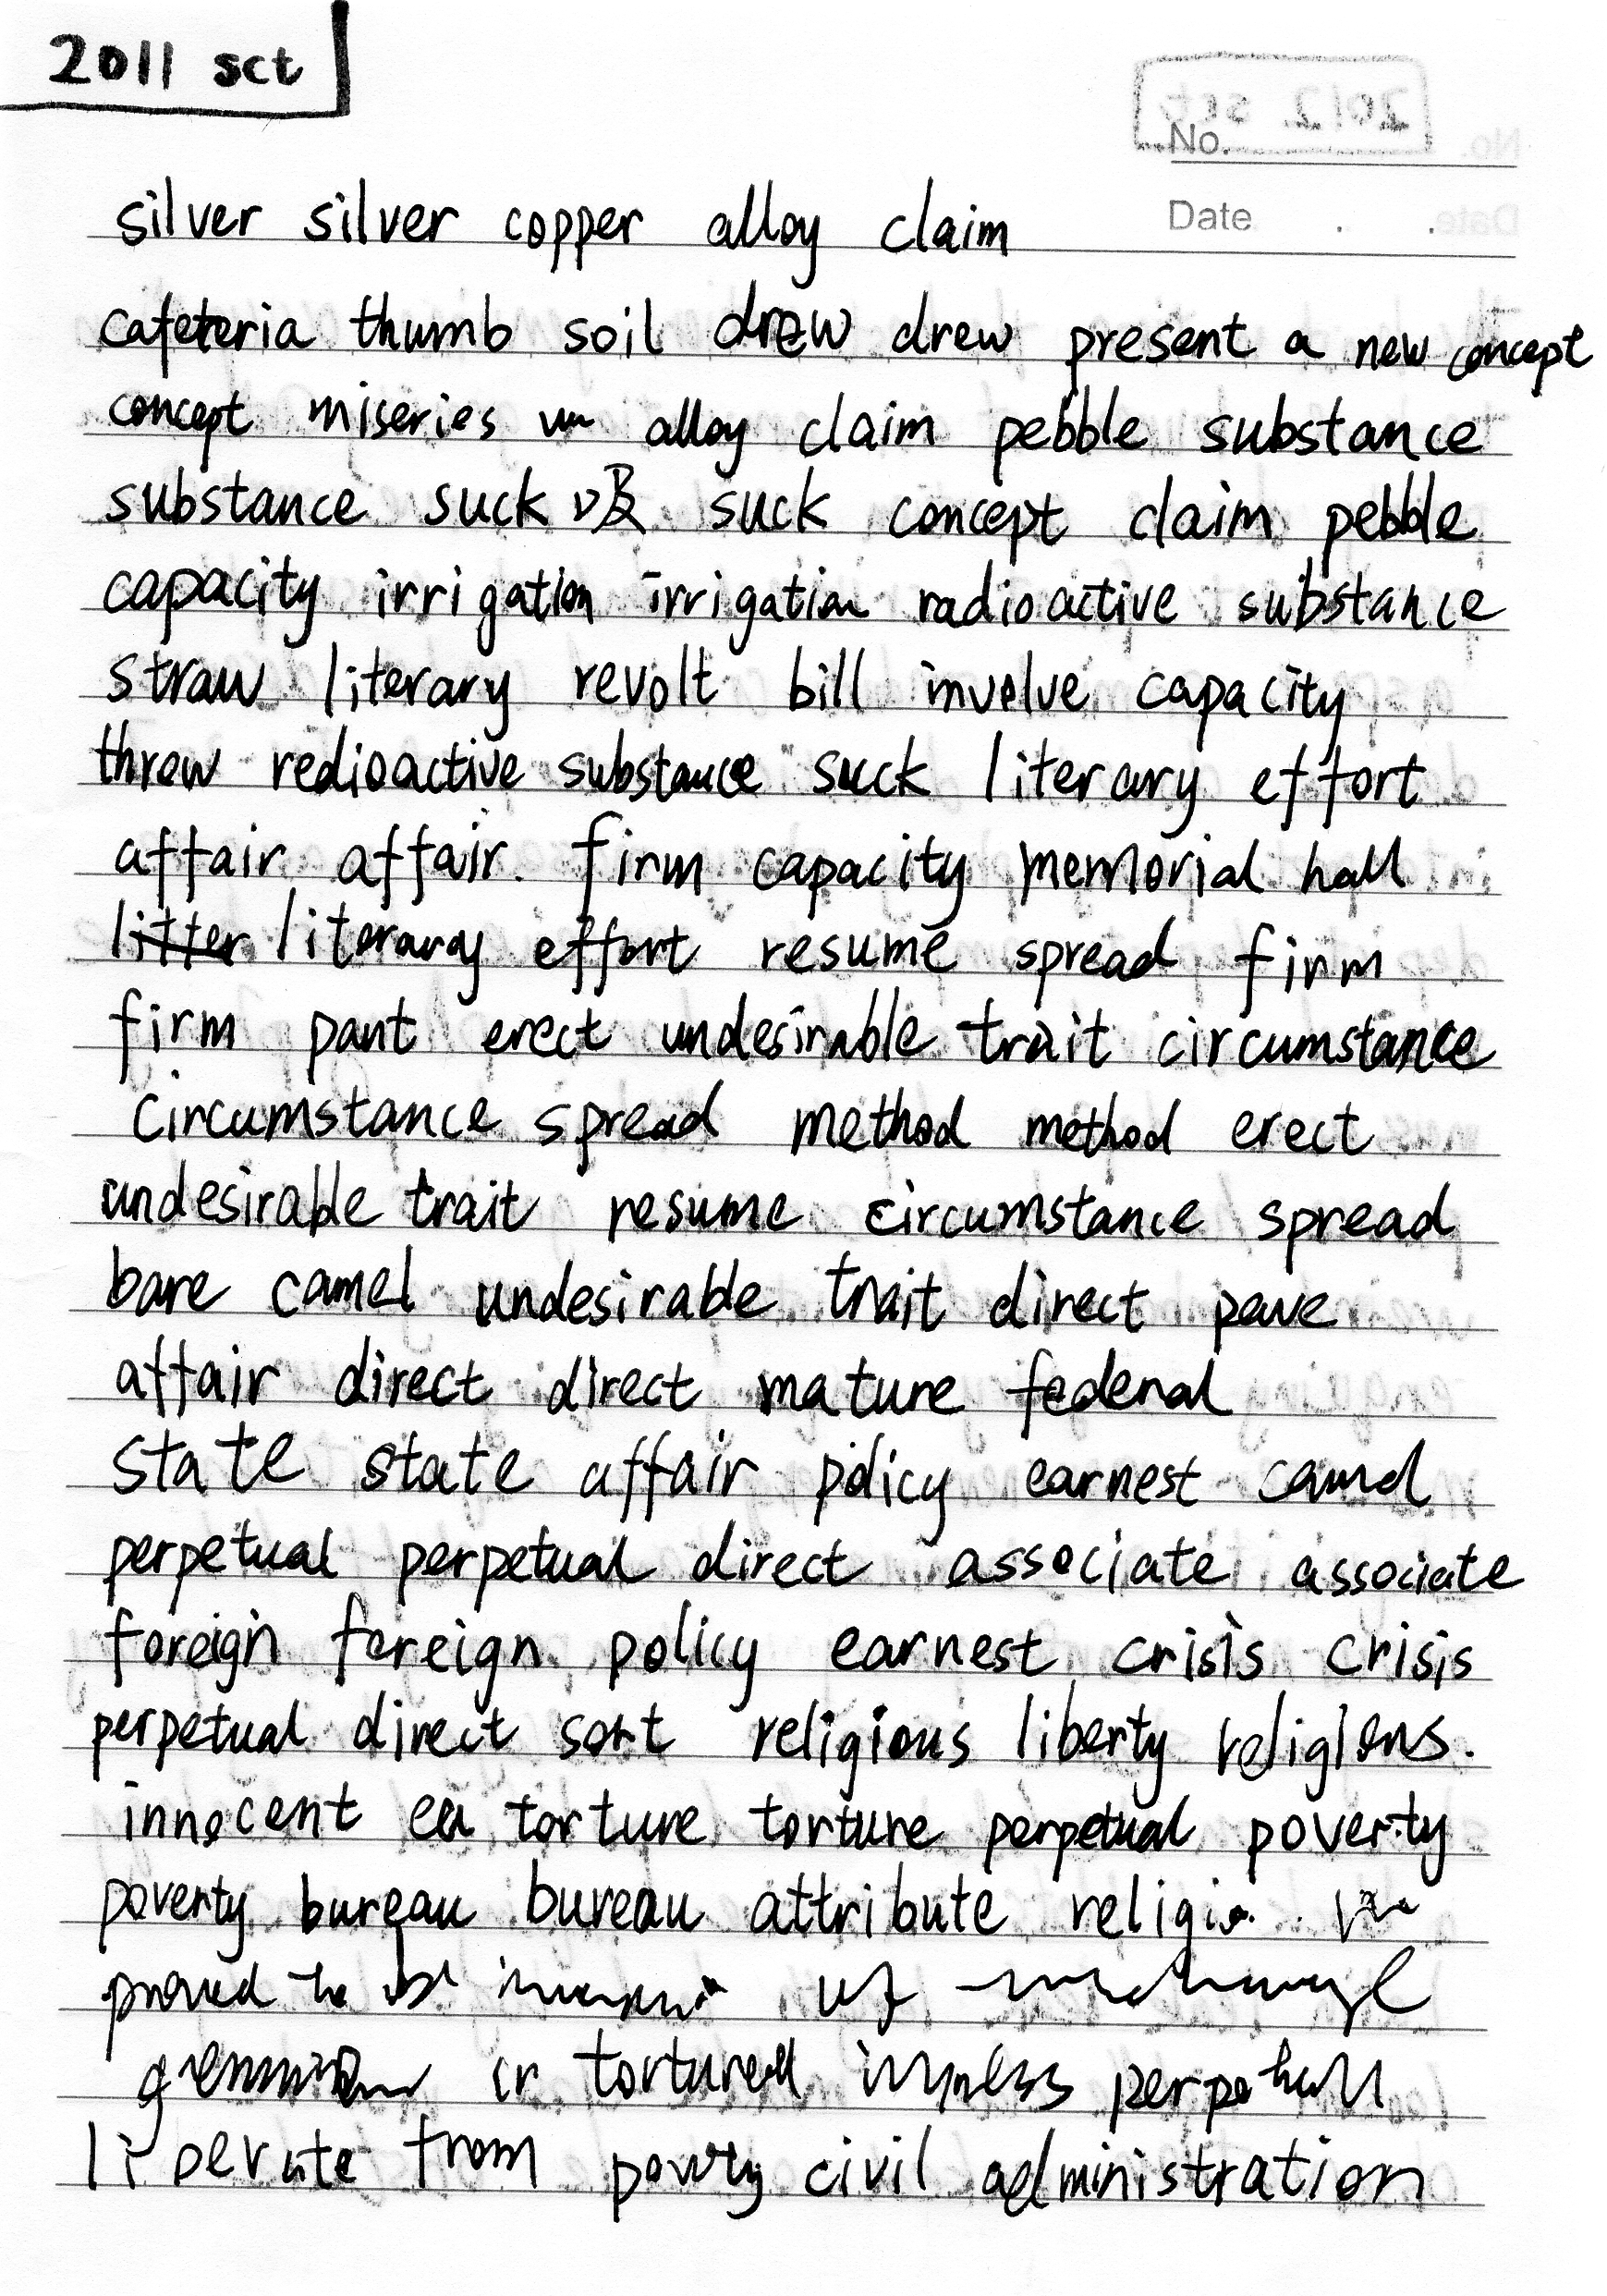 2011 sct
No.
Date
silver silver copper alloy claim
cafeteria thumb soil drew drew present a new concept
concept miseries alloy claim pebble substance
substance suck 吸 suck concept claim pebble
capacity irrigation irrigation radioactive substance
straw literary revolt bill involve capacity
threw redioactive substance suck literary effort
affair affair. firm capacity memorial hall
litter literary effort resume spread firm
firm pant erect undesirable trait circumstance
circumstance spread method method erect
undesirable trait resume circumstance spread
bare camel undesirable trait direct pave
affair direct direct mature federal
state state affair policy earnest camel
perpetual perpetual direct associate associate
foreign foreign policy earnest crisis crisis
perpetual direct sort religious liberty religious.
innocent torture torture perpetual poverty
poverty bureau bureau attribute religio
proved to be
or tortured perpetual
liberate from poverty civil administration